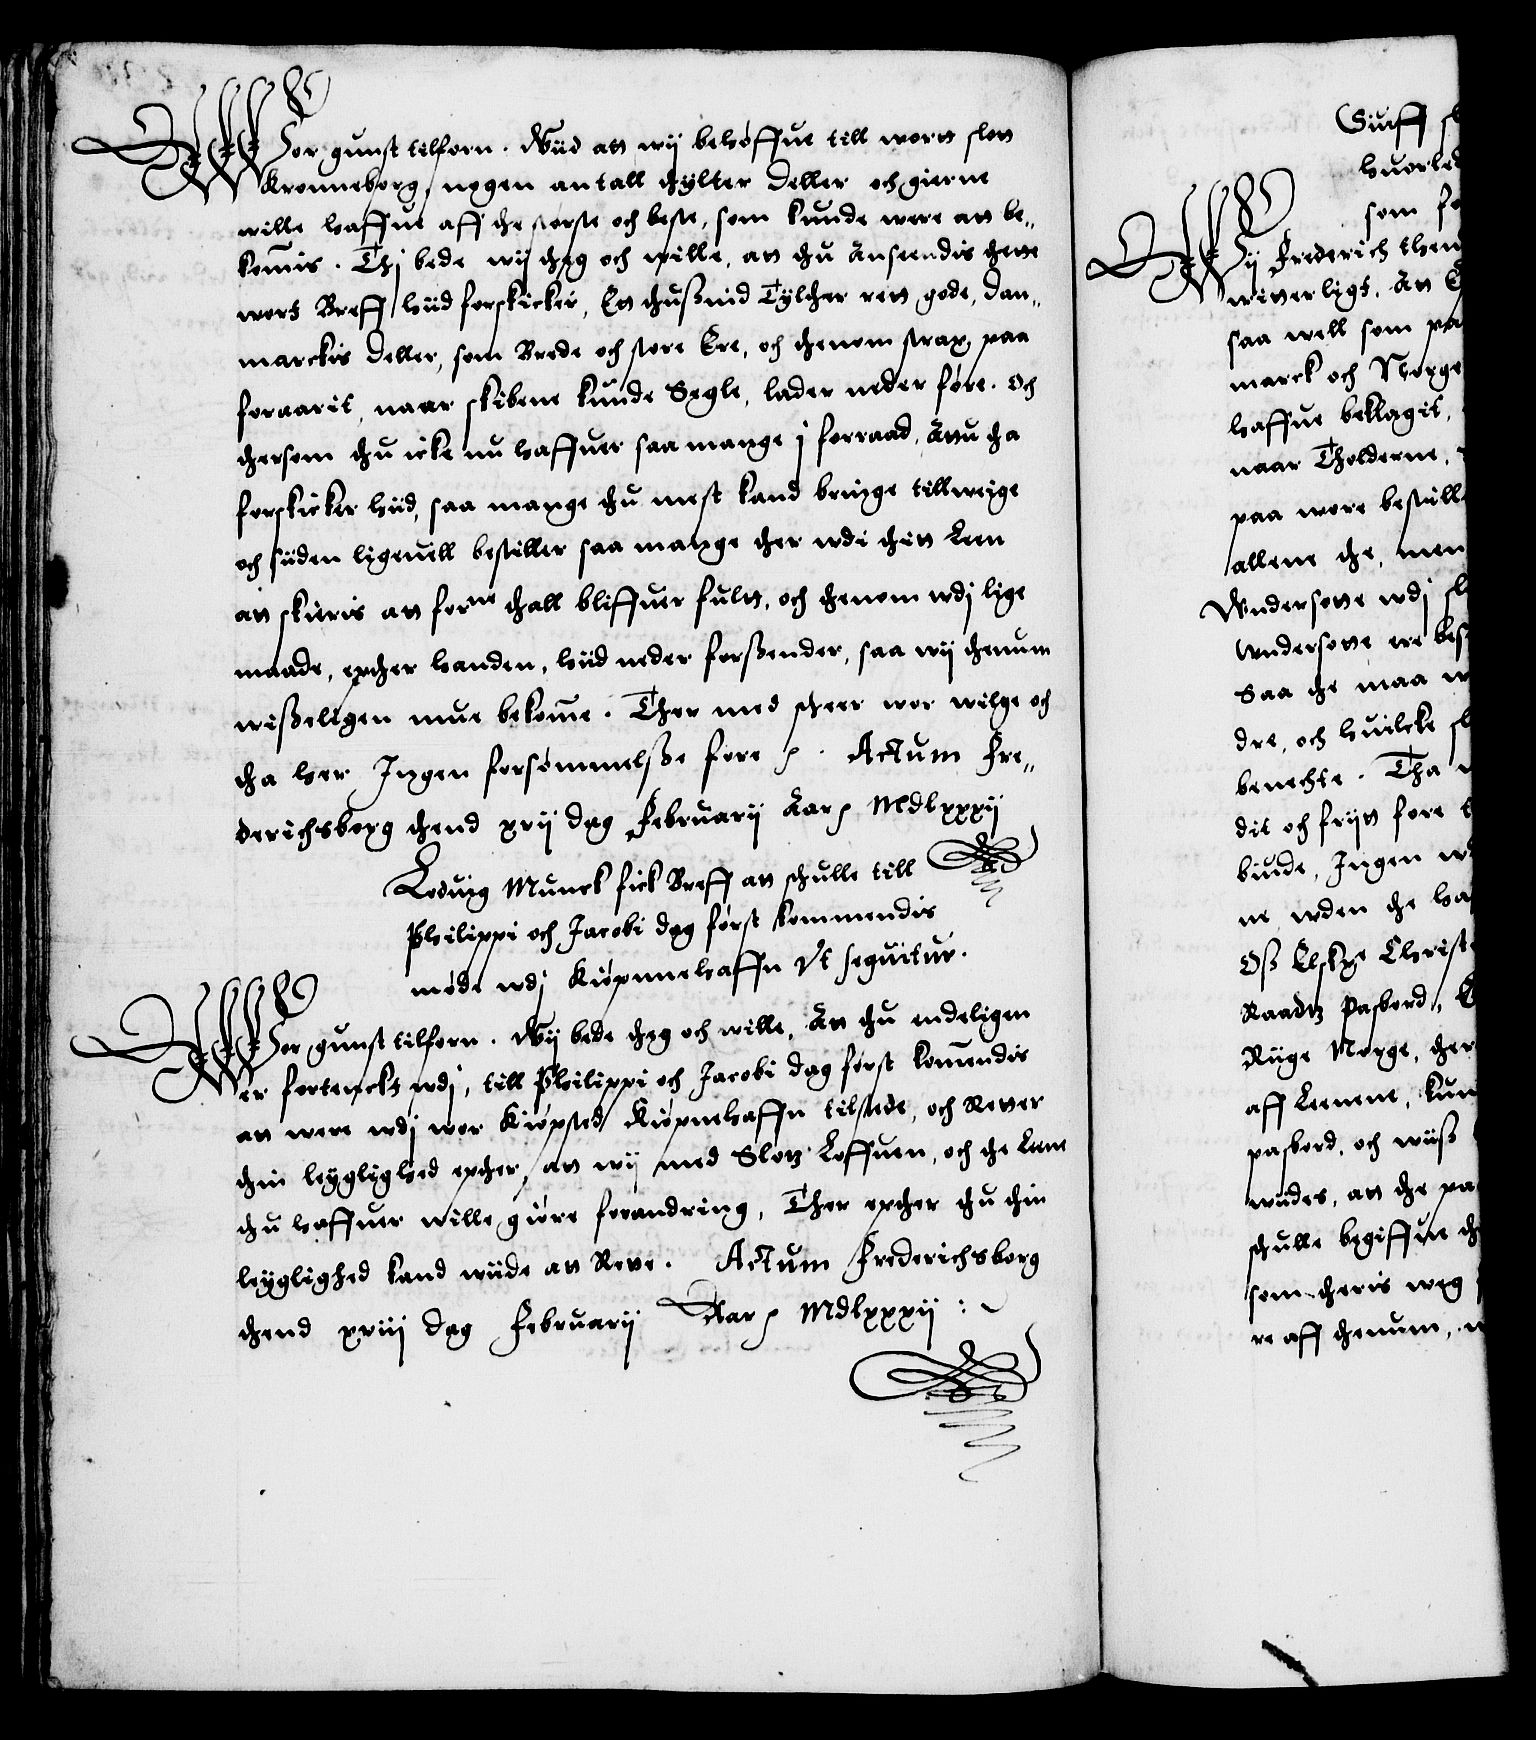 Wor gunst tilforn. Wiid att wij behøffue till wortt slott
Kronneborg, nogen antall thylter deller och gierne
wille haffue aff the største och beste, som kunde were att be„
komis. Thj bede wij theg och wille, att thu Anseendis thette
wort Breff hiid forskicker, Ett thusind Tylther rett gode, dan„
marckis deller, som Brede och store Ere, och thenom strax paa
foraarit, naar skibene kunde Segle, lader neder føre. Och
thersom thu icke nu haffuer saa mange j forraad, Attu tha
forskicker hiid, saa mange thu mest kand bringe tillweige
och siiden ligeuell bestiller saa mange ther wdi thitt Leen
att skieris att forne thall bliffuer fultt, och thenom wdj lige
maade, epther handen, hiid neder forßender, saa wij thenum
wißeligen mue bekome. Ther med scheer wor wilge och
tha her Jngen forsømmelße fore. Actum Fre„
derichsborg thend xvij dag Februarij Aar Mdlxxxij
Loduig Munck fick Breff att schulle till
Philippi och Jacobi dag først kommendis
møde wdj Kiøpnnehaffn Vt seguitur.
Wor gunst tilforn. Wij bede theg och wille, Att thu endeligen
er fortenckt wdj, till Philippi och Jacobi dag først komendis
att were wdj wor Kiøpsted Kiøpnehaffn tilstede, och Retter
thin leyglighed epther, att wij med Slotz Loffuen, och the Leene
thu haffuer wille giøre forandring, Ther epther thu thin
leyglighed kand wiide att Rette. Actum Frederichsborg
thend xviij dag Februarij Aar Mdlxxxij
huorled
som fo
Wij Frederich thend
witterligt, Att
saa well som paa
marck och Norge
haffue beklagit,
naar Tholderne,
paa wore bestill
allene the, men
Wndersotte wdj sl
Wndersotte ere bes
Saa the maa w
dre, och huilcke sl
benechte. Tha
dit och frijtt fore
biude, Jngen w
ne wden the ha
Oß Elskge Christ
Raadtz Pasbord,
Riige Norge, ther
aff Leenene, kun
pasbord, och wiiß
wides, att the pa
schulle begiffue th
som theris weg
re aff thenum,